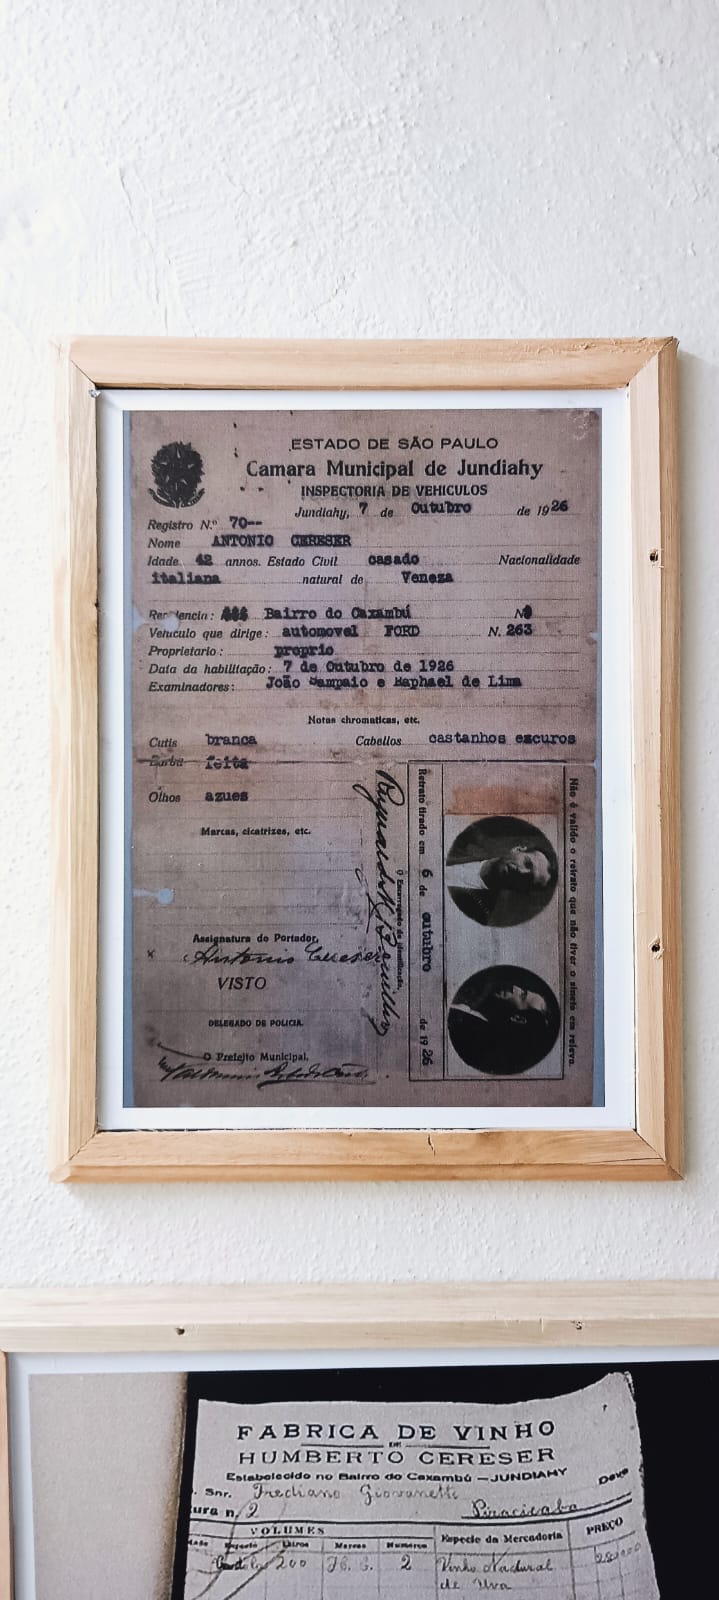 ESTADO DE SÃO PAULO
Camara Municipal de Jundiahy
INSPECTORIA DE VEHICULOS
Jundiahy, 7 de Outubro de 1926
Registro N.º 70--
Nome ANTONIO CERESER
Idade 42 annos. Estado Civil casado Nacionalidade
italiana natural de Veneza
Residencia: Bairro do Caxambú
Vehiculo que dirige: automovel FORD N. 263
Proprietario: proprio
Data da habilitação: 7 de Outubro de 1926
Examinadores: João Sampaio e Raphael de Lima
Notas chromaticas, etc.
Cutis branca Cabellos castanhos escuros
Barba feita
Olhos azues
Marcas, cicatrizes, etc.
Assignatura do Portador,
Antonio Cereser
VISTO
DELEGADO DE POLICIA.
O Prefeito Municipal,
O Encarregado da identificação,
Retrato tirado em 6 de outubro de 1926
Não é valido o retrato que não tiver o sinete em relevo.
FABRICA DE VINHO
DE
HUMBERTO CERESER
Estabelecido no Bairro do Caxambú — JUNDIAHY
Snr. Frediano Giovanetti Deve
ura n. 2 Piracicaba
VOLUMES Especie da Mercadoria PREÇO
Especie Litros Marcas Numeros
200 H. C. 2 Vinho Natural
de Uva